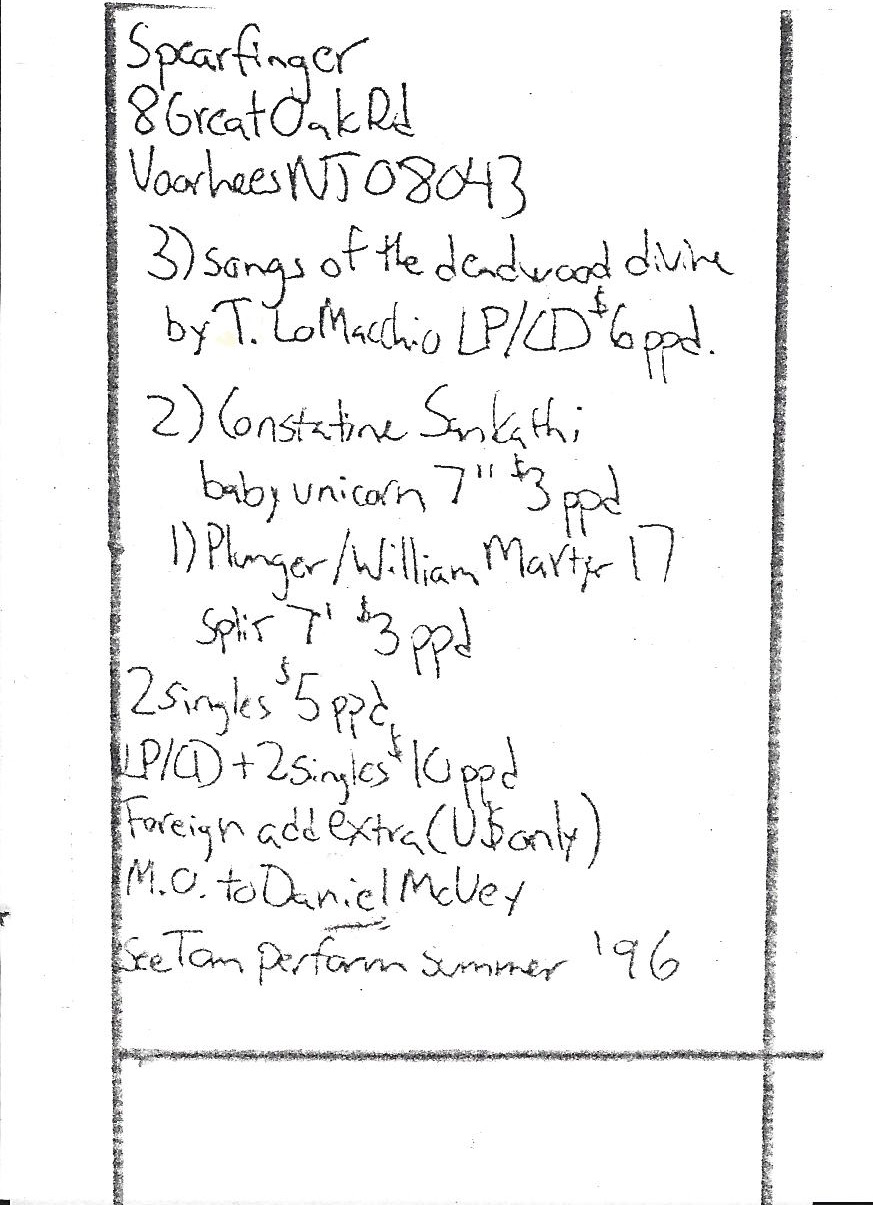 Spearfinger
8 Great Oak Rd
Voorhees NJ 08043
3) songs of the deadwood divine
by T. LoMacchio LP/CD $6 ppd.
2) Constatine Sankathi
baby unicorn 7" $3 ppd
1) Plunger/William Martyr 17
split 7' $3 ppd
2 singles $5 ppd,
LP/CD + 2 singles $10 ppd
Foreign add extra (U$ only)
M.O. to Daniel McVey
See Tom perform summer '96